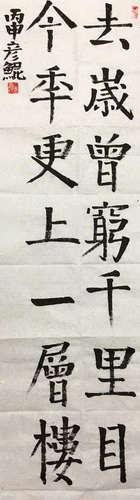 去歲曾窮千里目
今年更上一層樓
丙申彦鯤